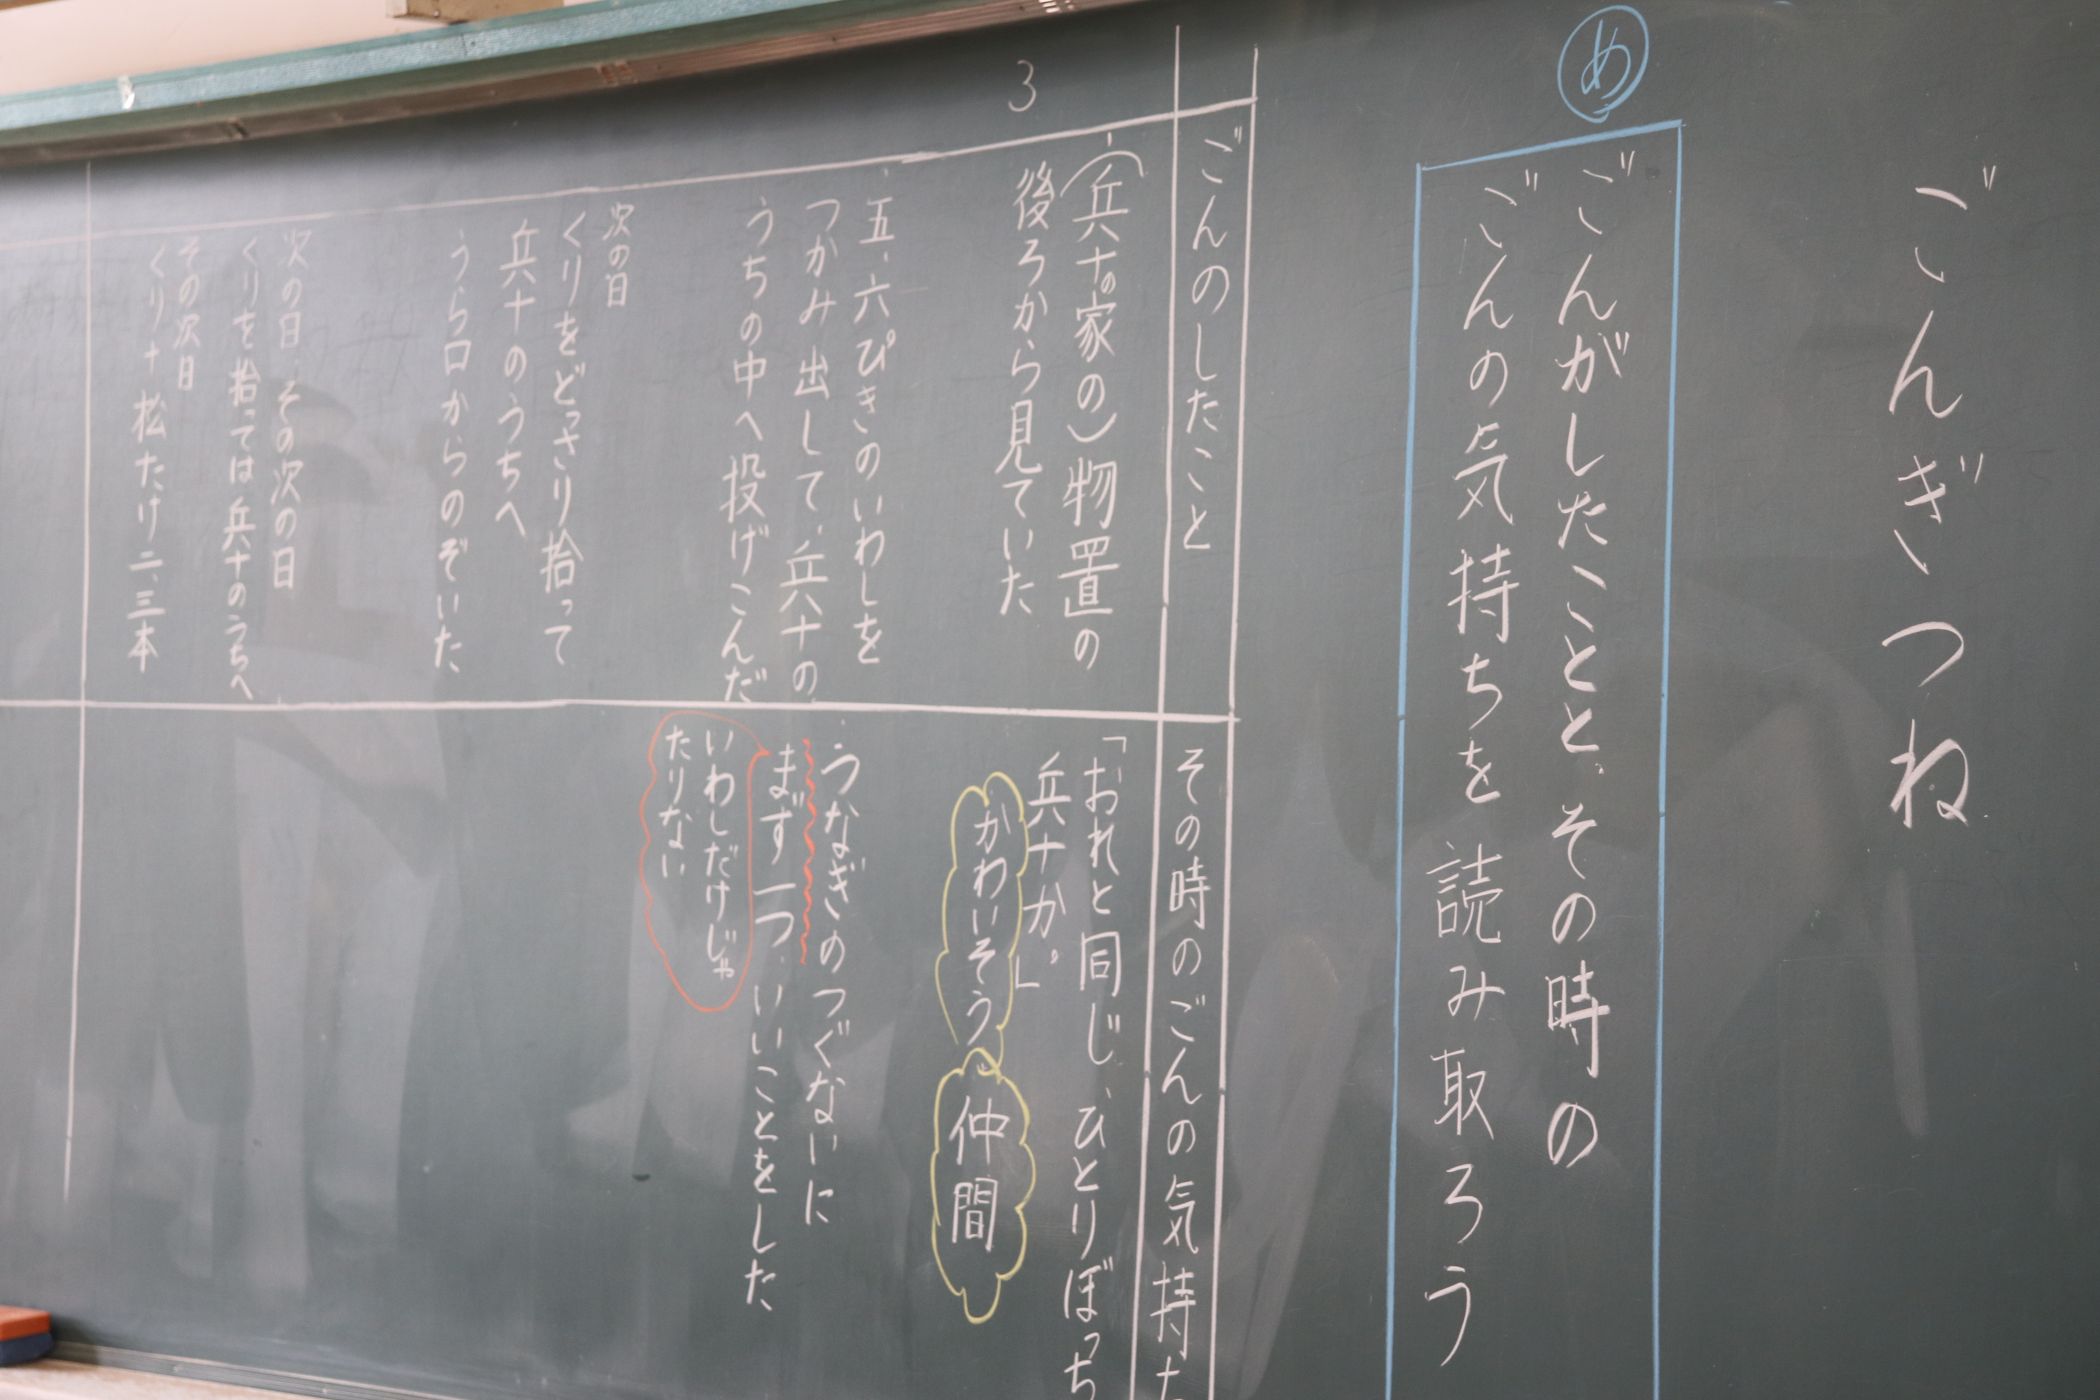 ごんぎつね
め
ごんがしたことと、その時の
ごんの気持ちを読み取ろう
ごんのしたこと
その時のごんの気持ち
3
(兵十の家の)物置の
後ろから見ていた
「おれと同じ、ひとりぼっち
兵十か。」
かわいそう
仲間
五、六ぴきのいわしを
つかみ出して、兵十の
うちの中へ投げこんだ
うなぎのつぐないに
まず一つ、いいことをした
いわしだけじゃ
たりない
次の日
くりをどっさり拾って
兵十のうちへ
うら口からのぞいた
次の日、その次の日
くりを拾っては兵十のうちへ
その次日
くり+松たけ二、三本